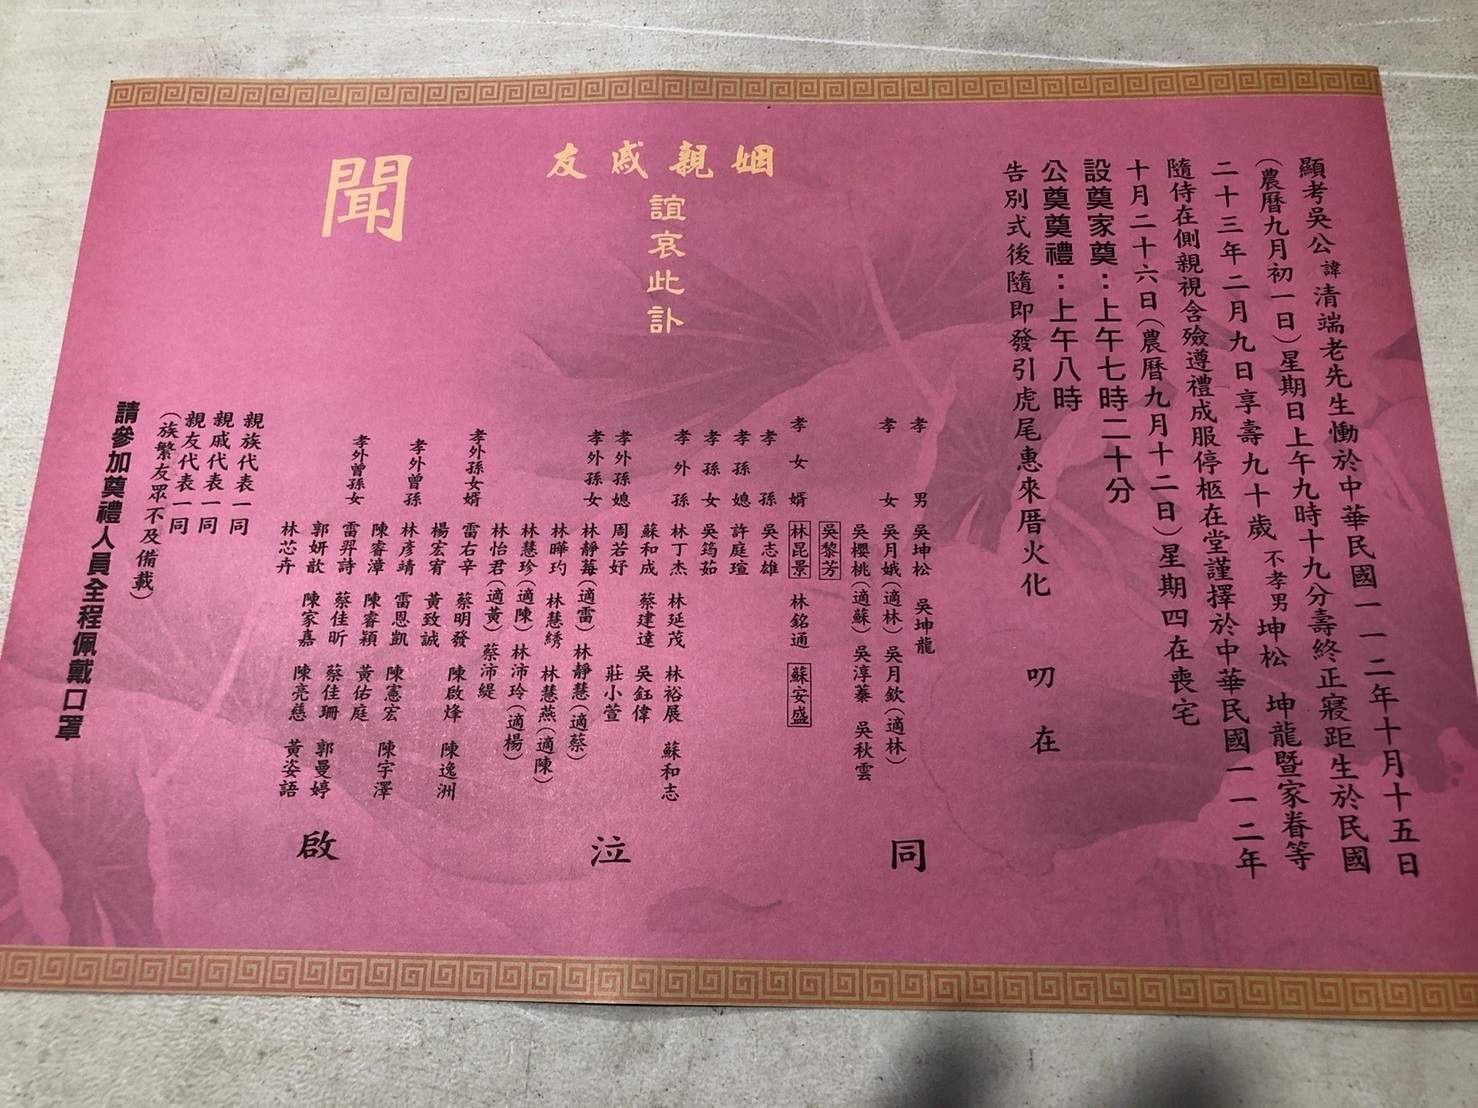 顯考吳公諱清端老先生慟於中華民國一一二年十月十五日
(農曆九月初一日)星期日上午九時十九分壽終正寢距生於民國
二十三年二月九日享壽九十歲 不孝男 坤松 坤龍暨家眷等
隨侍在側親視含殮遵禮成服停柩在堂謹擇於中華民國一一二年
十月二十六日(農曆九月十二日)星期四在喪宅
設奠家奠:上午七時二十分
公奠奠禮:上午八時
告別式後隨即發引虎尾惠來厝火化 叨在
姻親戚友
誼哀此訃
聞
孝男 吳坤松 吳坤龍
孝女 吳月娥(適林) 吳月欽(適林)
吳櫻桃(適蘇) 吳淳蓁 吳秋雲
吳黎芳
孝女婿 林昆景 林銘通 蘇安盛
孝孫 吳志雄
孝孫媳 許庭瑄
孝孫女 吳筠茹
孝外孫 林丁杰 林延茂 林裕展 蘇和志
蘇和成 蔡建達 吳鈺偉
孝外孫媳 周若妤 莊小萱
孝外孫女 林靜莓(適雷) 林靜慧(適蔡)
林曄玓 林慧綉 林慧燕(適陳)
林慧珍(適陳) 林沛玲(適楊)
林怡君(適黃) 蔡沛緹
孝外孫女婿 雷右辛 蔡明發 陳啟烽 陳逸洲
楊宏宥 黃致誠
孝外曾孫 林彥靖 雷恩凱 陳憲宏 陳宇澤
陳睿漳 陳睿穎 黃佑庭
孝外曾孫女 雷羿詩 蔡佳昕 蔡佳珊 郭曼婷
郭妍歆 陳家嘉 陳亮慈 黃姿語
林芯卉
同泣啟
親族代表一同
親戚代表一同
親友代表一同
(族繁友眾不及備載)
請參加奠禮人員全程佩戴口罩